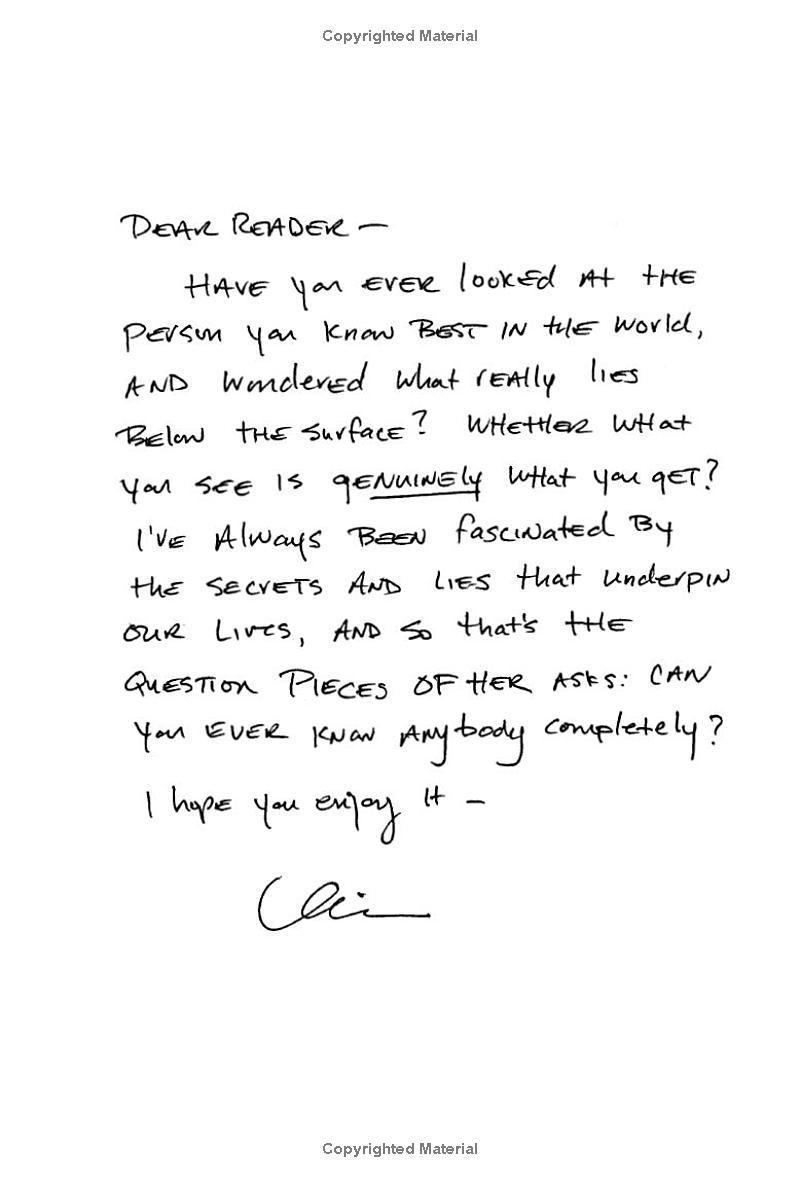 Copyrighted Material
DEAR READER —
HAVE you EVER looked At tHE
Person you know BEST IN tHE world,
AND wondered what rEAlly liEs
BElow tHE surface? WHEtHER WHat
you SEE IS gENUINELy wHat you gET?
I'VE Always BEEN fascinated By
tHE SECrETS AND LIES that underpin
OUR LivEs, AND so that's tHE
QUESTION PIECES OF HER ASKS: CAN
you EVER KNOW ANybody completely?
I hopE you enjoy It —
Copyrighted Material